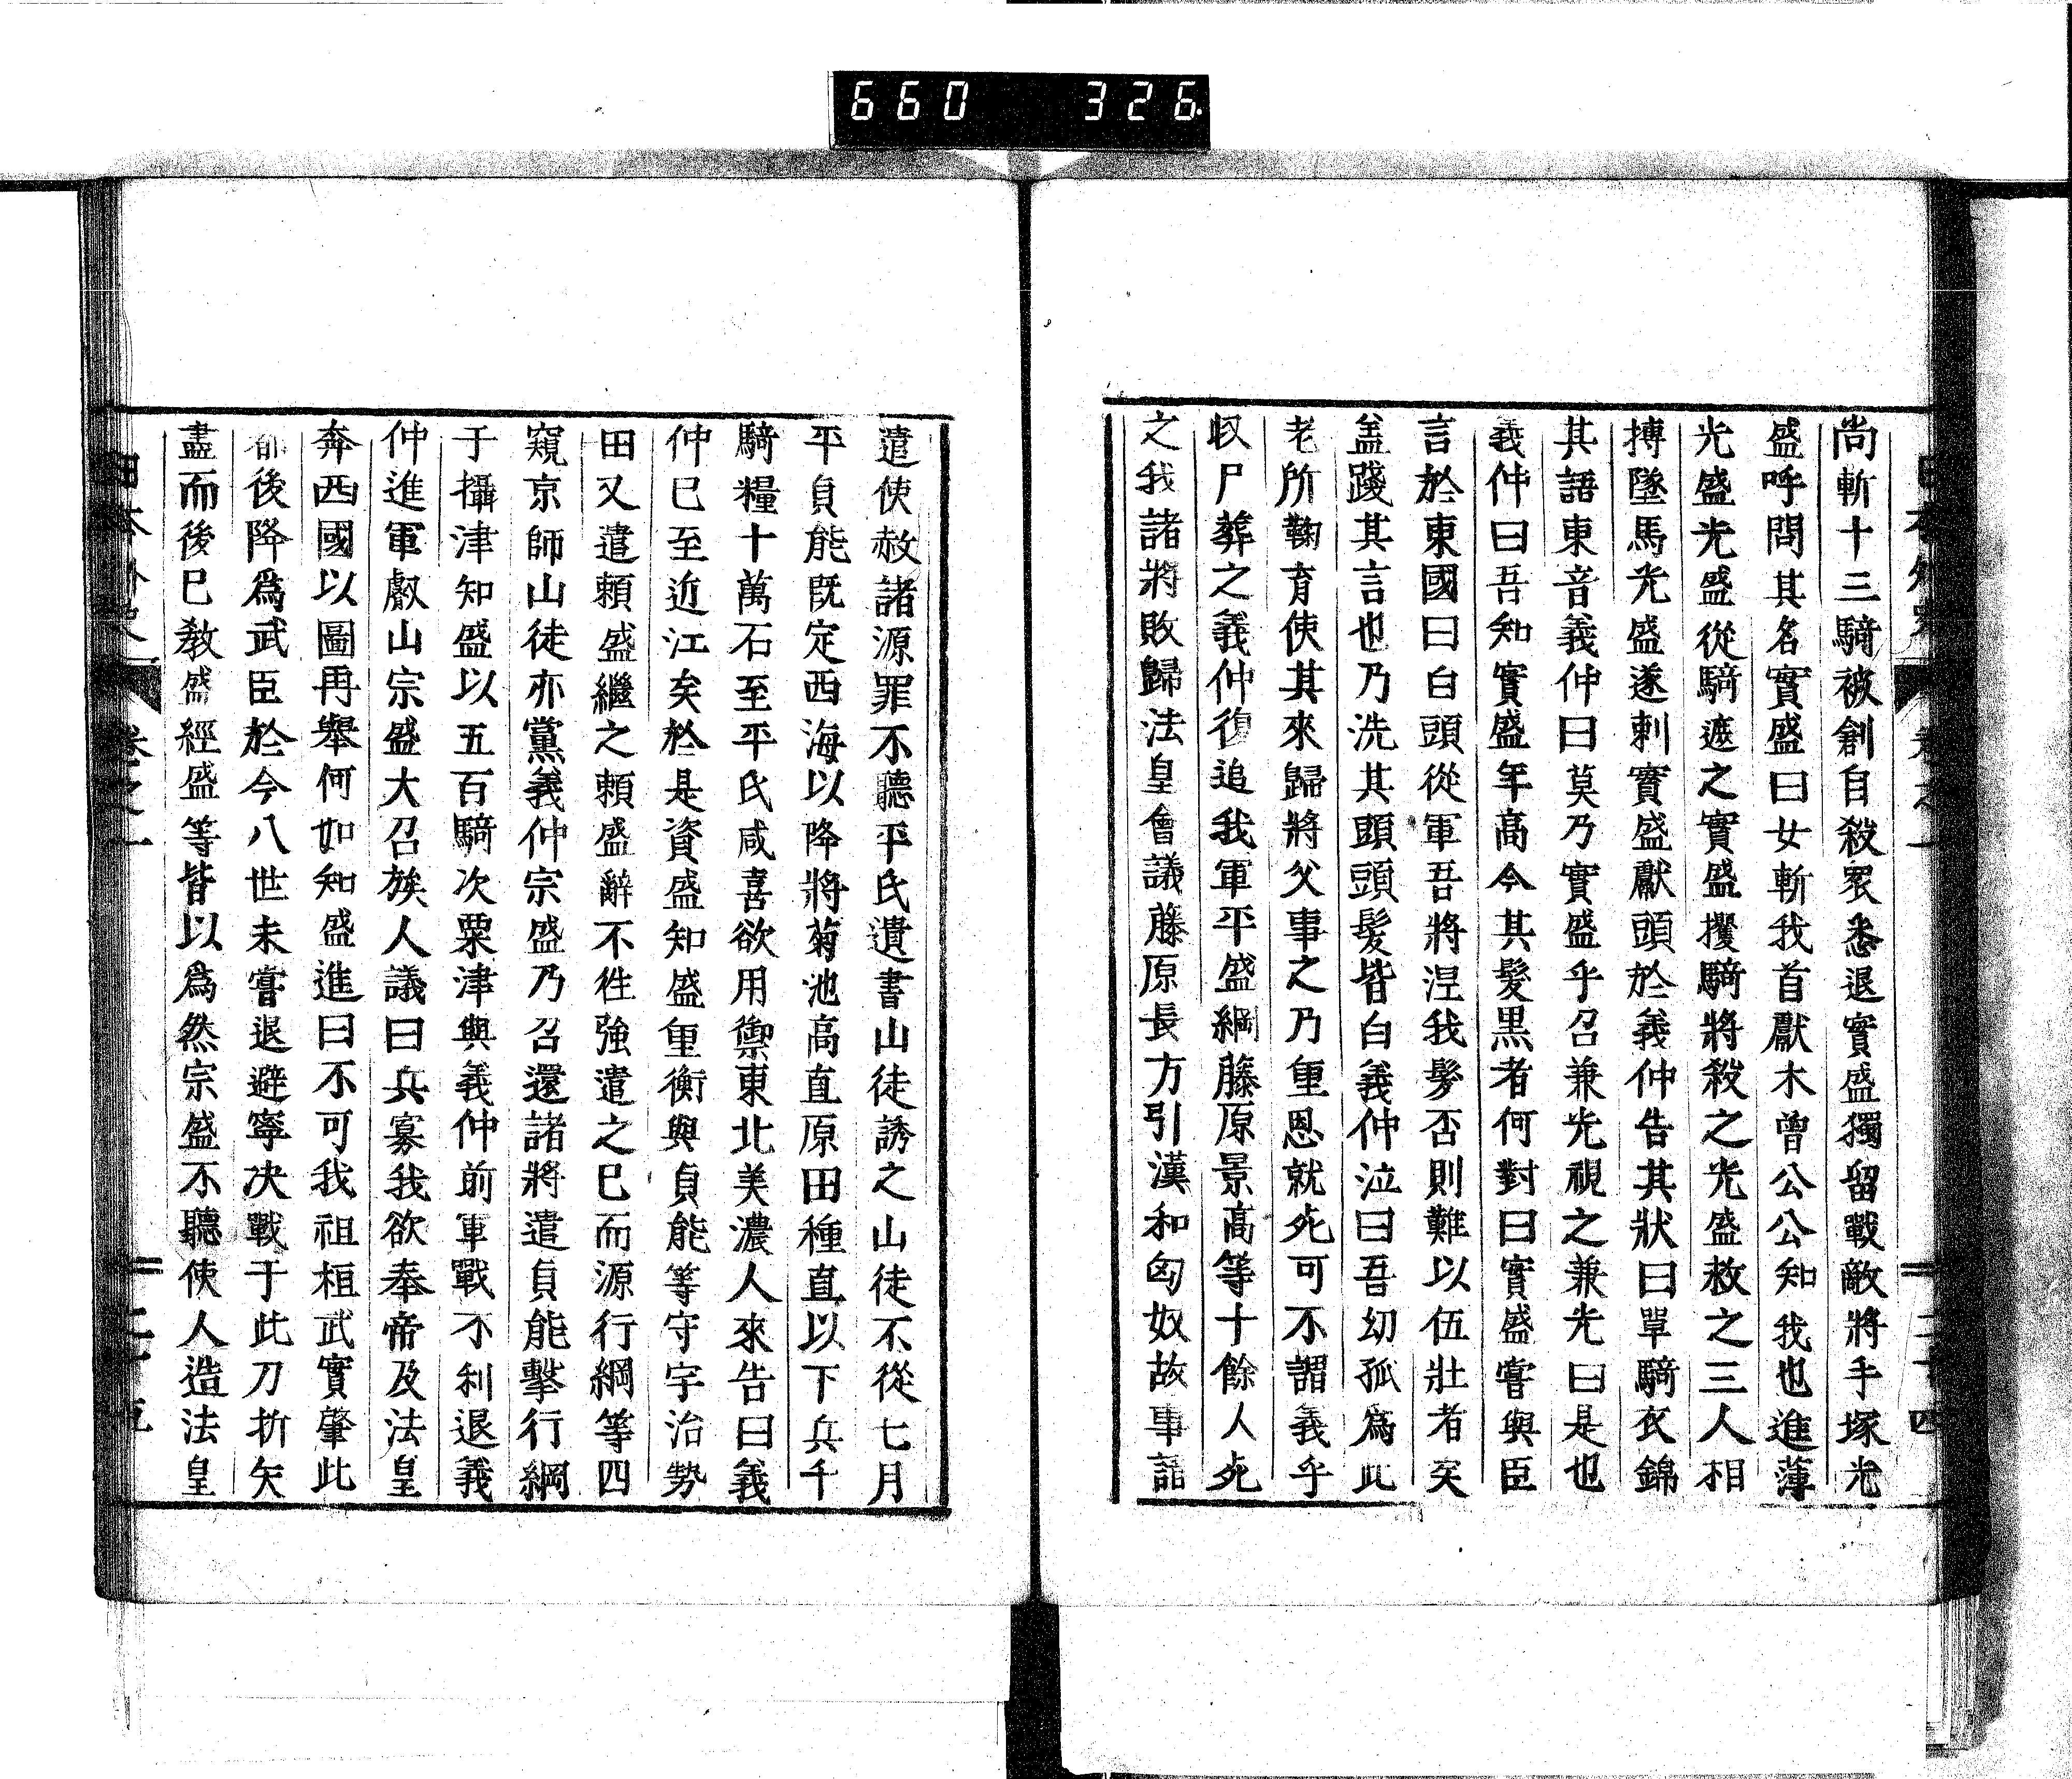 660 326
尚斬十三騎被創自殺衆悉退實盛獨留戰敵將手塚光
盛呼問其名實盛曰女斬我首獻木曾公公知我也進薄
光盛光盛從騎遮之實盛攫騎將殺之光盛救之三人相
搏墜馬光盛遂刺實盛獻頭於義仲告其狀曰單騎衣錦
其語東音義仲曰莫乃實盛乎召兼光視之兼光曰是也
義仲曰吾知實盛年高今其髮黒者何對曰實盛嘗與臣
言於東國曰白頭從軍吾將涅我髮否則難以伍壯者矣
盖踐其言也乃洗其頭頭髮皆白義仲泣曰吾幼孤爲此
老所鞠育使其來歸將父事之乃重恩就死可不謂義乎
収尸葬之義仲復追我軍平盛綱藤原景高等十餘人死
之我諸將敗歸法皇會議藤原長方引漢和匈奴故事請
遣使赦諸源罪不聽平氏遺書山徒誘之山徒不從七月
平貞能既定西海以降將菊池高直原田種直以下兵千
騎糧十萬石至平氏咸喜欲用禦東北美濃人來告曰義
仲已至近江矣於是資盛知盛重衡與貞能等守宇治勢
田又遣頼盛繼之頼盛辭不徃強遣之已而源行綱等四
窺京師山徒亦黨義仲宗盛乃召還諸將遣貞能擊行綱
于攝津知盛以五百騎次粟津與義仲前軍戰不利退義
仲進軍叡山宗盛大召族人議曰兵寡我欲奉帝及法皇
奔西國以圖再舉何如知盛進曰不可我祖桓武實肇此
都後降爲武臣於今八世未嘗退避寧决戰于此刀折矢
盡而後已教盛經盛等皆以爲然宗盛不聽使人造法皇